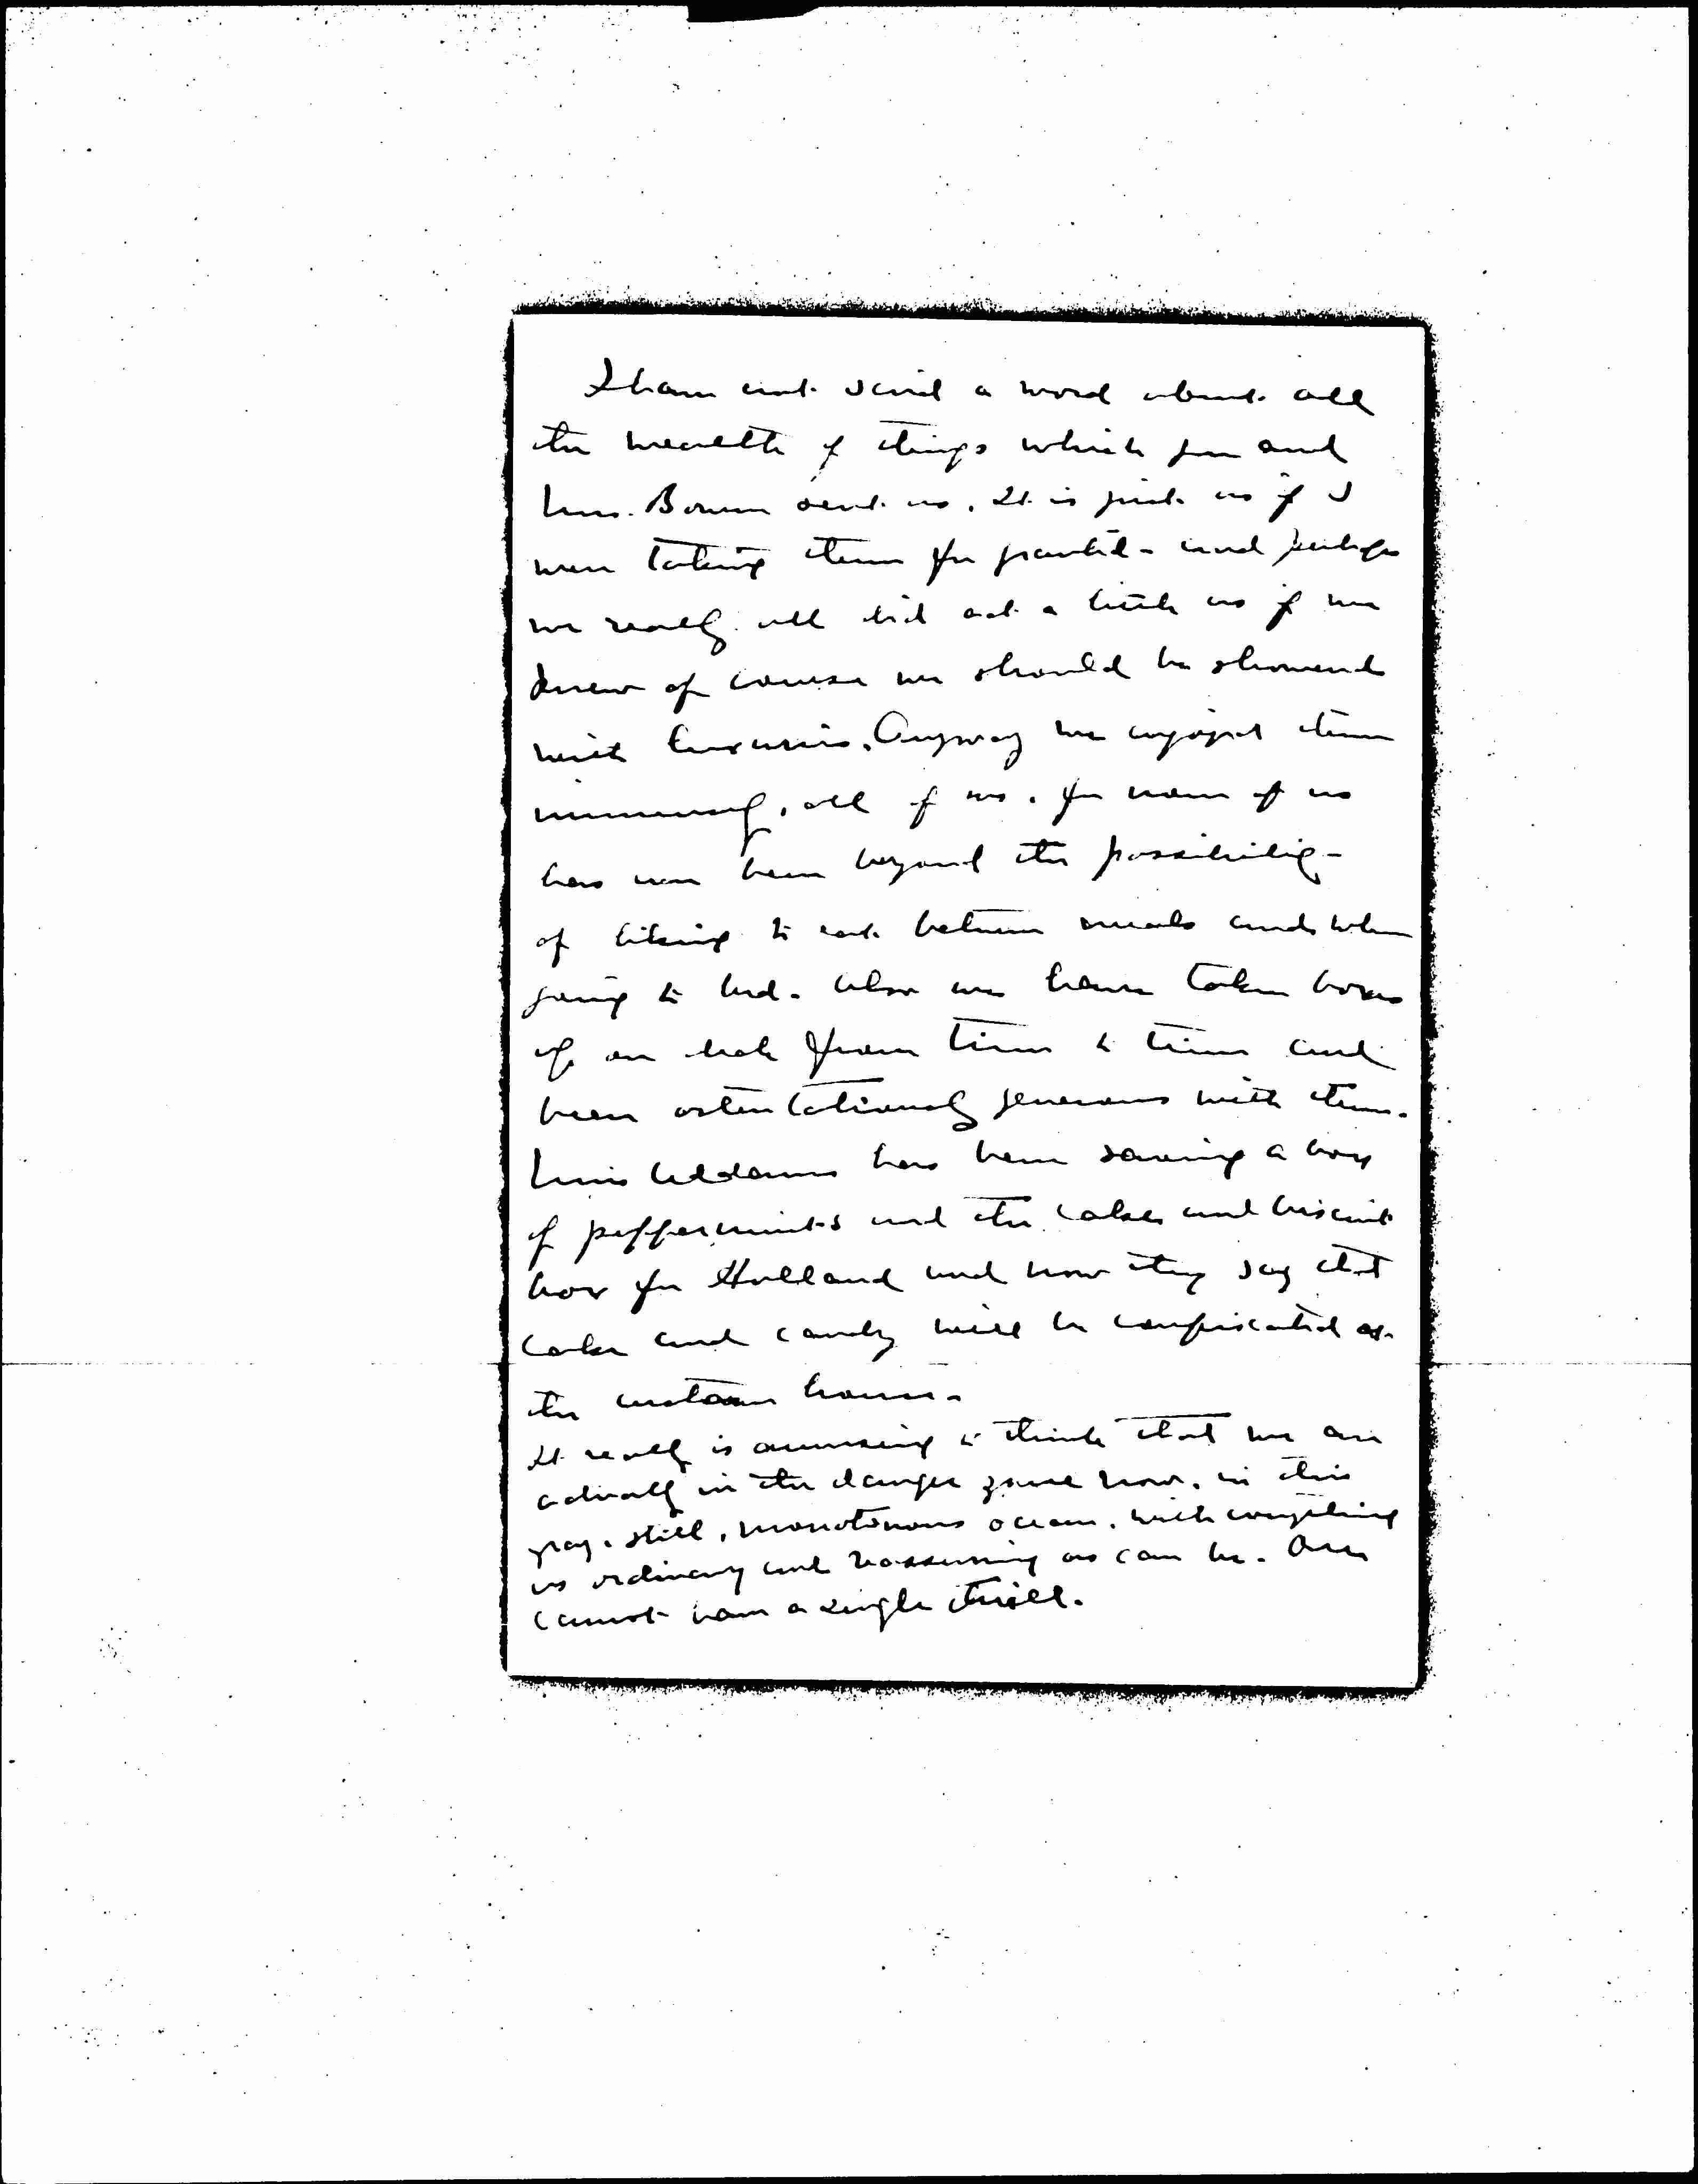 I have not said a word about all
the wealth of things which you and
Mrs. Bowen sent us. It is just as if I
were taking them for granted - and perhaps
we really all did act a little as if we
knew of course we should be showered
with luxuries. Anyway we enjoyed them
immensely, all of us, for none of us
has ever been beyond the possibility
of liking to eat between meals and when
going to bed. Also we have taken boxes
up on deck from time to time and
been ostentatiously generous with them.
Miss Addams has been saving a box
of peppermints and the cakes and biscuit
box for Holland and now they say that
cake and candy will be confiscated at
the custom house.
It really is amusing to think that we are
actually in the danger zone now, in this
gray, still, monotonous ocean, with everything
as ordinary and reassuring as can be. One
cannot have a single thrill.